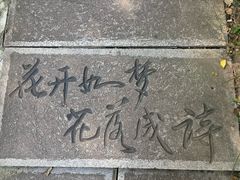 花开如梦
花落成诗